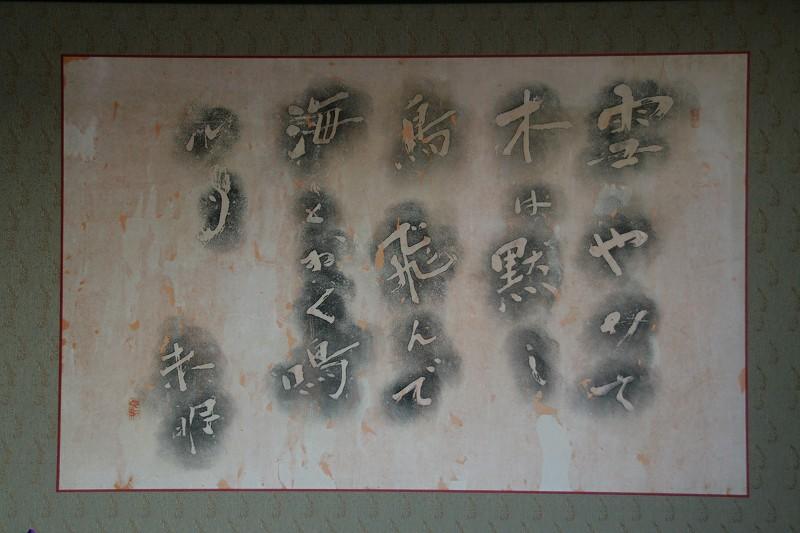 雲やけて
木は黙し
鳥飛んで
海とおく鳴
り
未明